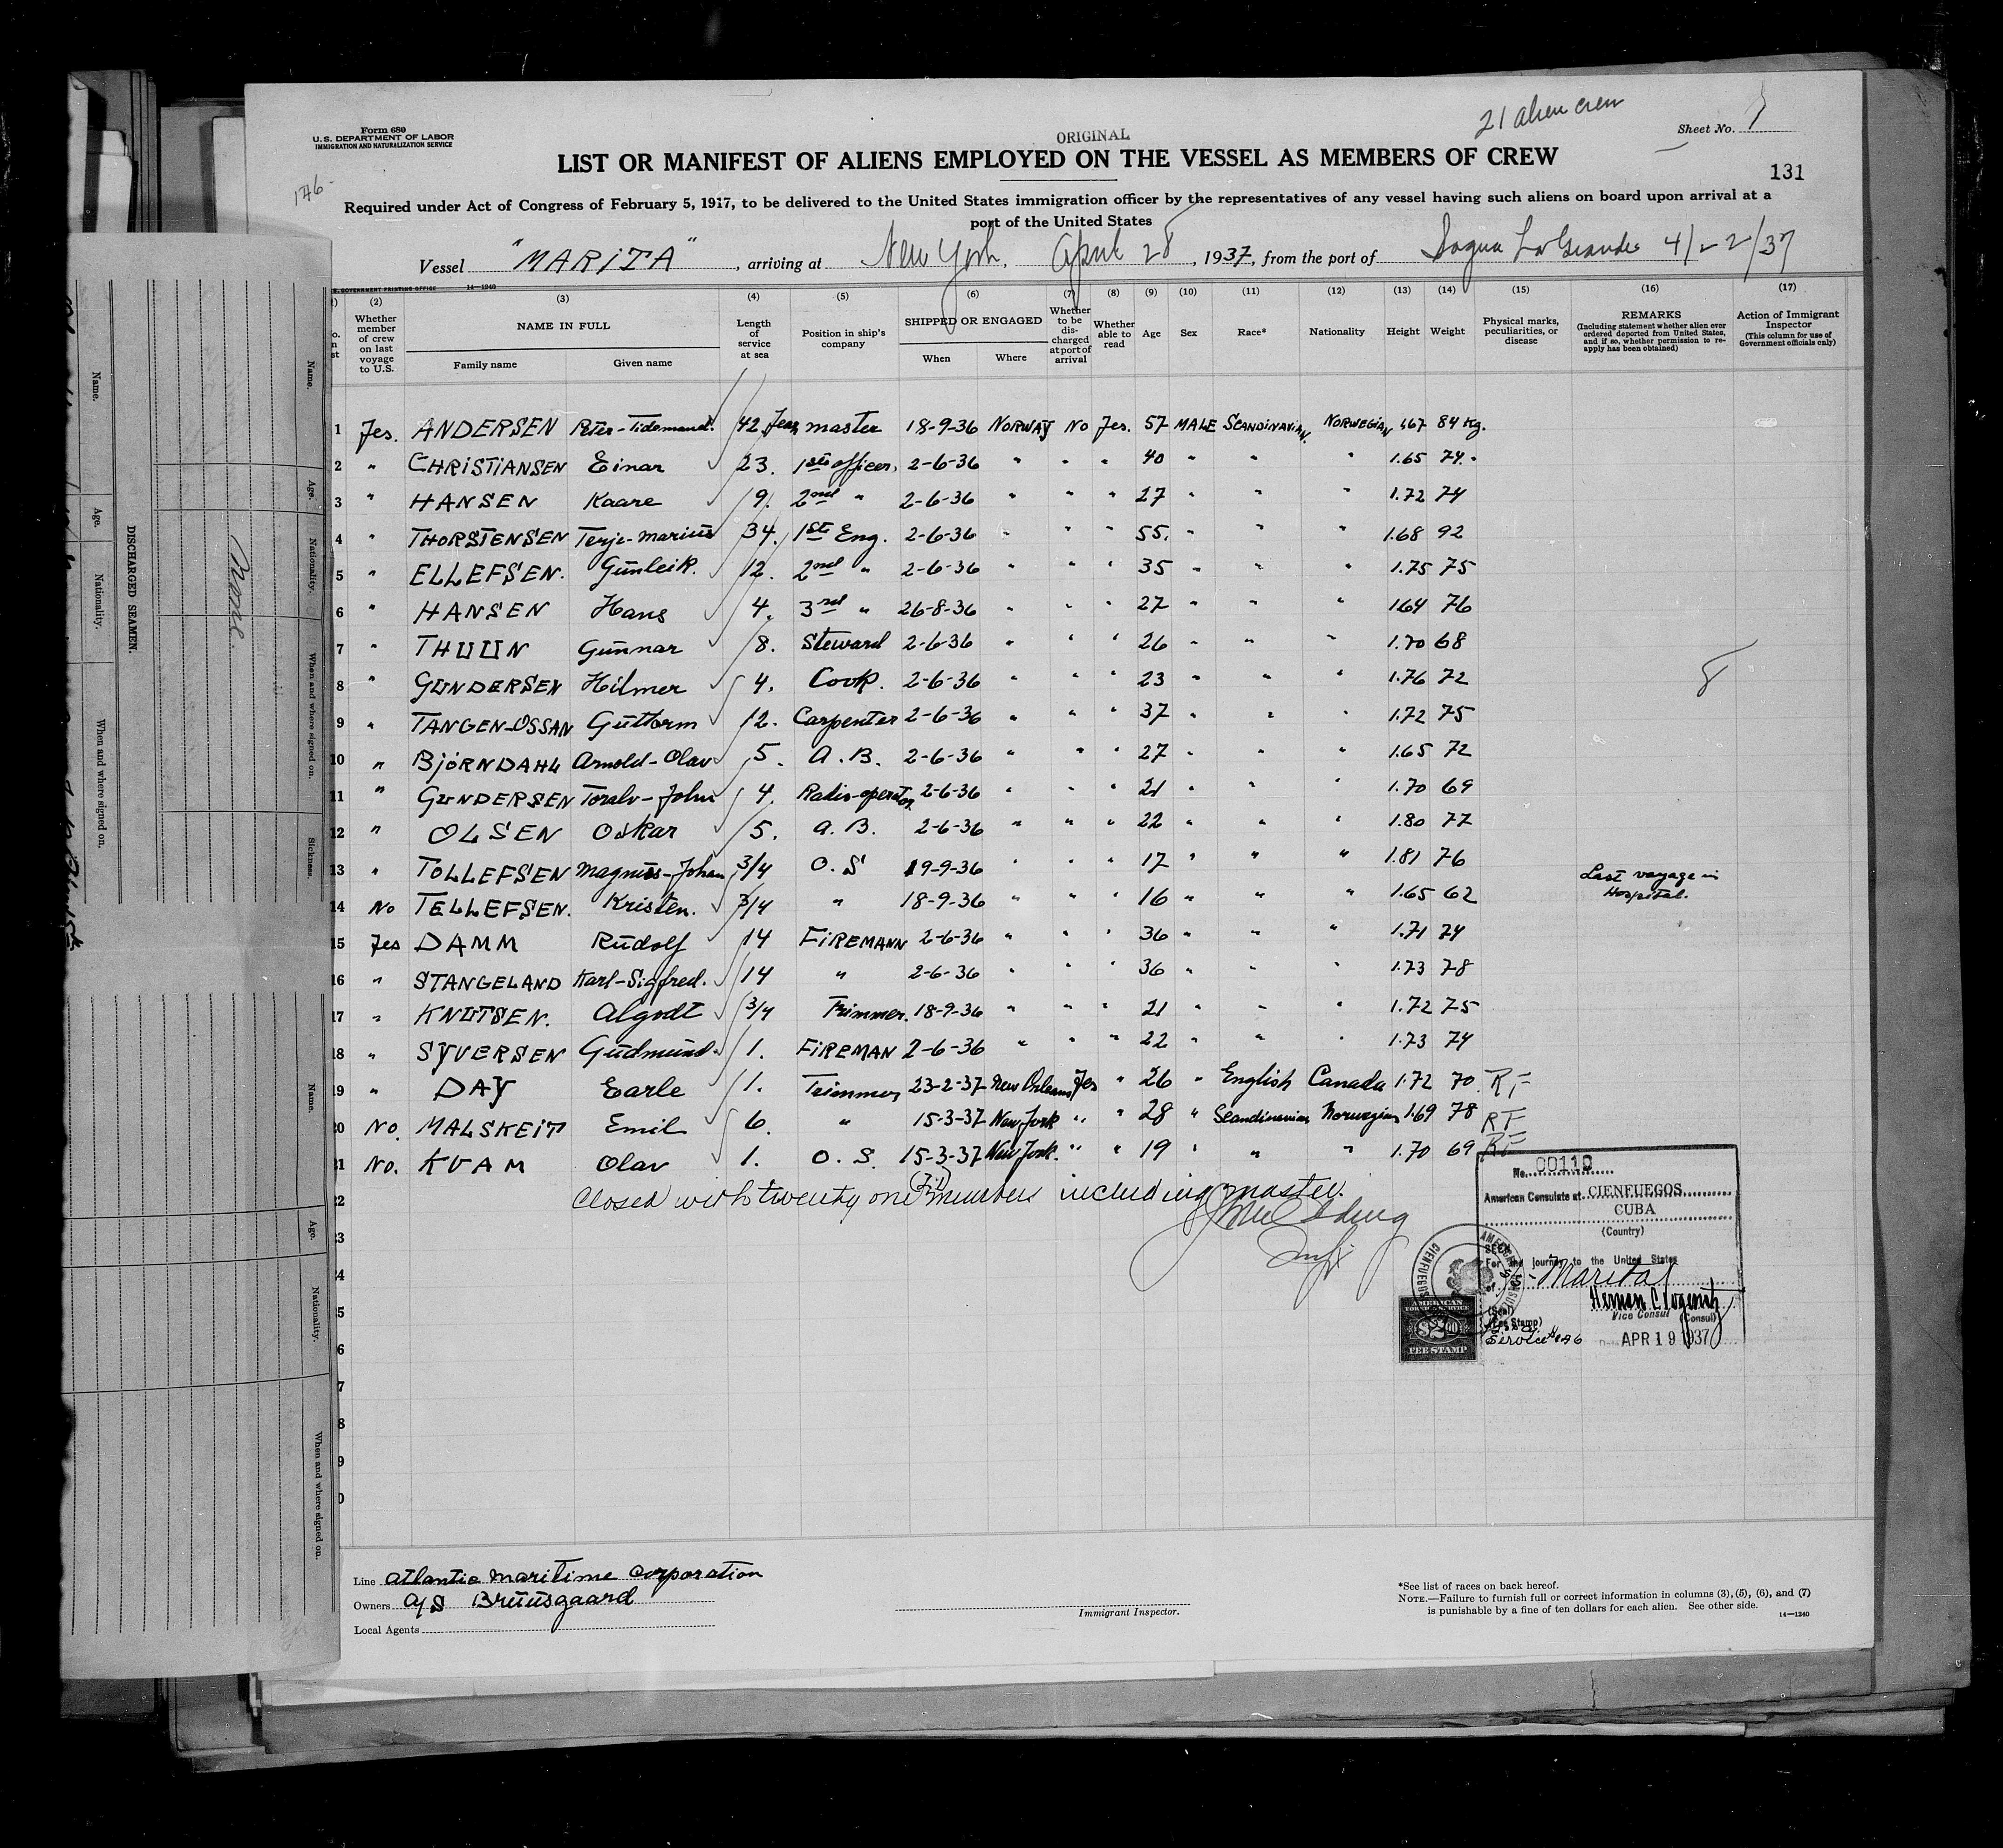 Form 680
U.S. DEPARTMENT OF LABOR
IMMIGRATION AND NATURALIZATION SERVICE
ORIGINAL
21 alien crew
Sheet No. 1
LIST OR MANIFEST OF ALIENS EMPLOYED ON THE VESSEL AS MEMBERS OF CREW
131
146-
Required under Act of Congress of February 5, 1917, to be delivered to the United States immigration officer by the representatives of any vessel having such aliens on board upon arrival at a
port of the United States
Vessel "MARITA", arriving at New York, April 28, 1937, from the port of Sagua La Grande 4/22/37
U.S. GOVERNMENT PRINTING OFFICE 14—1240
(2) (3) (4) (5) (6) (7) (8) (9) (10) (11) (12) (13) (14) (15) (16) (17)
Whether member of crew on last voyage to U.S.
NAME IN FULL
Family name Given name
Length of service at sea
Position in ship's company
SHIPPED OR ENGAGED
When Where
Whether to be discharged at port of arrival
Whether able to read
Age Sex Race* Nationality Height Weight
Physical marks, peculiarities, or disease
REMARKS
(Including statement whether alien ever ordered deported from United States, and if so, whether permission to re-apply has been obtained)
Action of Immigrant Inspector
(This column for use of Government officials only)
1 Jes. ANDERSEN Peter-Tidemand. 42 Jears master 18-9-36 NORWAY No Jes. 57 MALE SCANDINAVIAN NORWEGIAN 167 84 Kg.
2 " CHRISTIANSEN Einar 23. 1st officer. 2-6-36 " " " 40 " " " 1.65 74 "
3 " HANSEN Kaare 9. 2nd " 2-6-36 " " " 27 " " " 1.72 74
4 " THORSTENSEN Terje-Marius 34. 1st Eng. 2-6-36 " " " 55. " " " 1.68 92
5 " ELLEFSEN. Gunleik. 12. 2nd " 2-6-36 " " " 35 " " " 1.75 75
6 " HANSEN Hans 4. 3rd " 26-8-36 " " " 27 " " " 164 76
7 " THUUN Gunnar 8. Steward 2-6-36 " " " 26 " " " 1.70 68
8 " GUNDERSEN Hilmer 4. Cook. 2-6-36 " " " 23 " " " 1.76 72
9 " TANGEN-OSSAN Guttorm 12. Carpenter 2-6-36 " " " 37 " " " 1.72 75
10 " BJÖRNDAHL Arnold-Olav 5. A.B. 2-6-36 " " " 27 " " " 1.65 72
11 " GUNDERSEN Toralv-John 4. Radio-operator 2-6-36 " " " 21 " " " 1.70 69
12 " OLSEN Oskar 5. A.B. 2-6-36 " " " 22 " " " 1.80 77
13 " TOLLEFSEN Magnus-Johan 3/4 O.S 19-9-36 " " " 17 " " " 1.81 76
14 No TELLEFSEN. Kristen. 3/4 " 18-9-36 " " " 16 " " " 1.65 62 Last voyage in Hospital.
15 Jes DAMM Rudolf 14 FIREMANN 2-6-36 " " " 36 " " " 1.71 74
16 " STANGELAND Karl-Sigfred. 14 " 2-6-36 " " " 36 " " " 1.73 78
17 " KNUTSEN. Algodt 3/4 Trimmer. 18-9-36 " " " 21 " " " 1.72 75
18 " SYVERSEN Gudmund. 1. FIREMAN 2-6-36 " " " 22 " " " 1.73 74
19 " DAY Earle 1. Trimmer 23-2-37 New Orleans Jes " 26 " English Canada 1.72 70 RF
20 No. MALSKEIT Emil 6. " 15-3-37 New Jork " " 28 " Scandinavian Norwegian 1.69 78 RF
21 No. KVAM Olav 1. O.S. 15-3-37 New Jork. " " 19 " " " 1.70 69 RF
Closed with twenty one (21) members including master.
No. 00110
American Consulate at CIENFUEGOS
CUBA
(Country)
SEEN
For the journey to the United States
of Marita
Vice Consul (Consul)
(Seal)
(Fee Stamp)
Service # 146
Date APR 19 1937
AMERICAN
FOREIGN SERVICE
$2.00
FEE STAMP
Line Atlantic Maritime Corporation
Owners A/S Bruusgaard
Local Agents
Immigrant Inspector.
*See list of races on back hereof.
NOTE.—Failure to furnish full or correct information in columns (3), (5), (6), and (7)
is punishable by a fine of ten dollars for each alien. See other side.
14—1240
DISCHARGED SEAMEN.
Name. Age. Nationality. When and where signed on.
Name. Age. Nationality. When and where signed on. Sickness.
None.
Name. Age. Nationality When and where signed on.